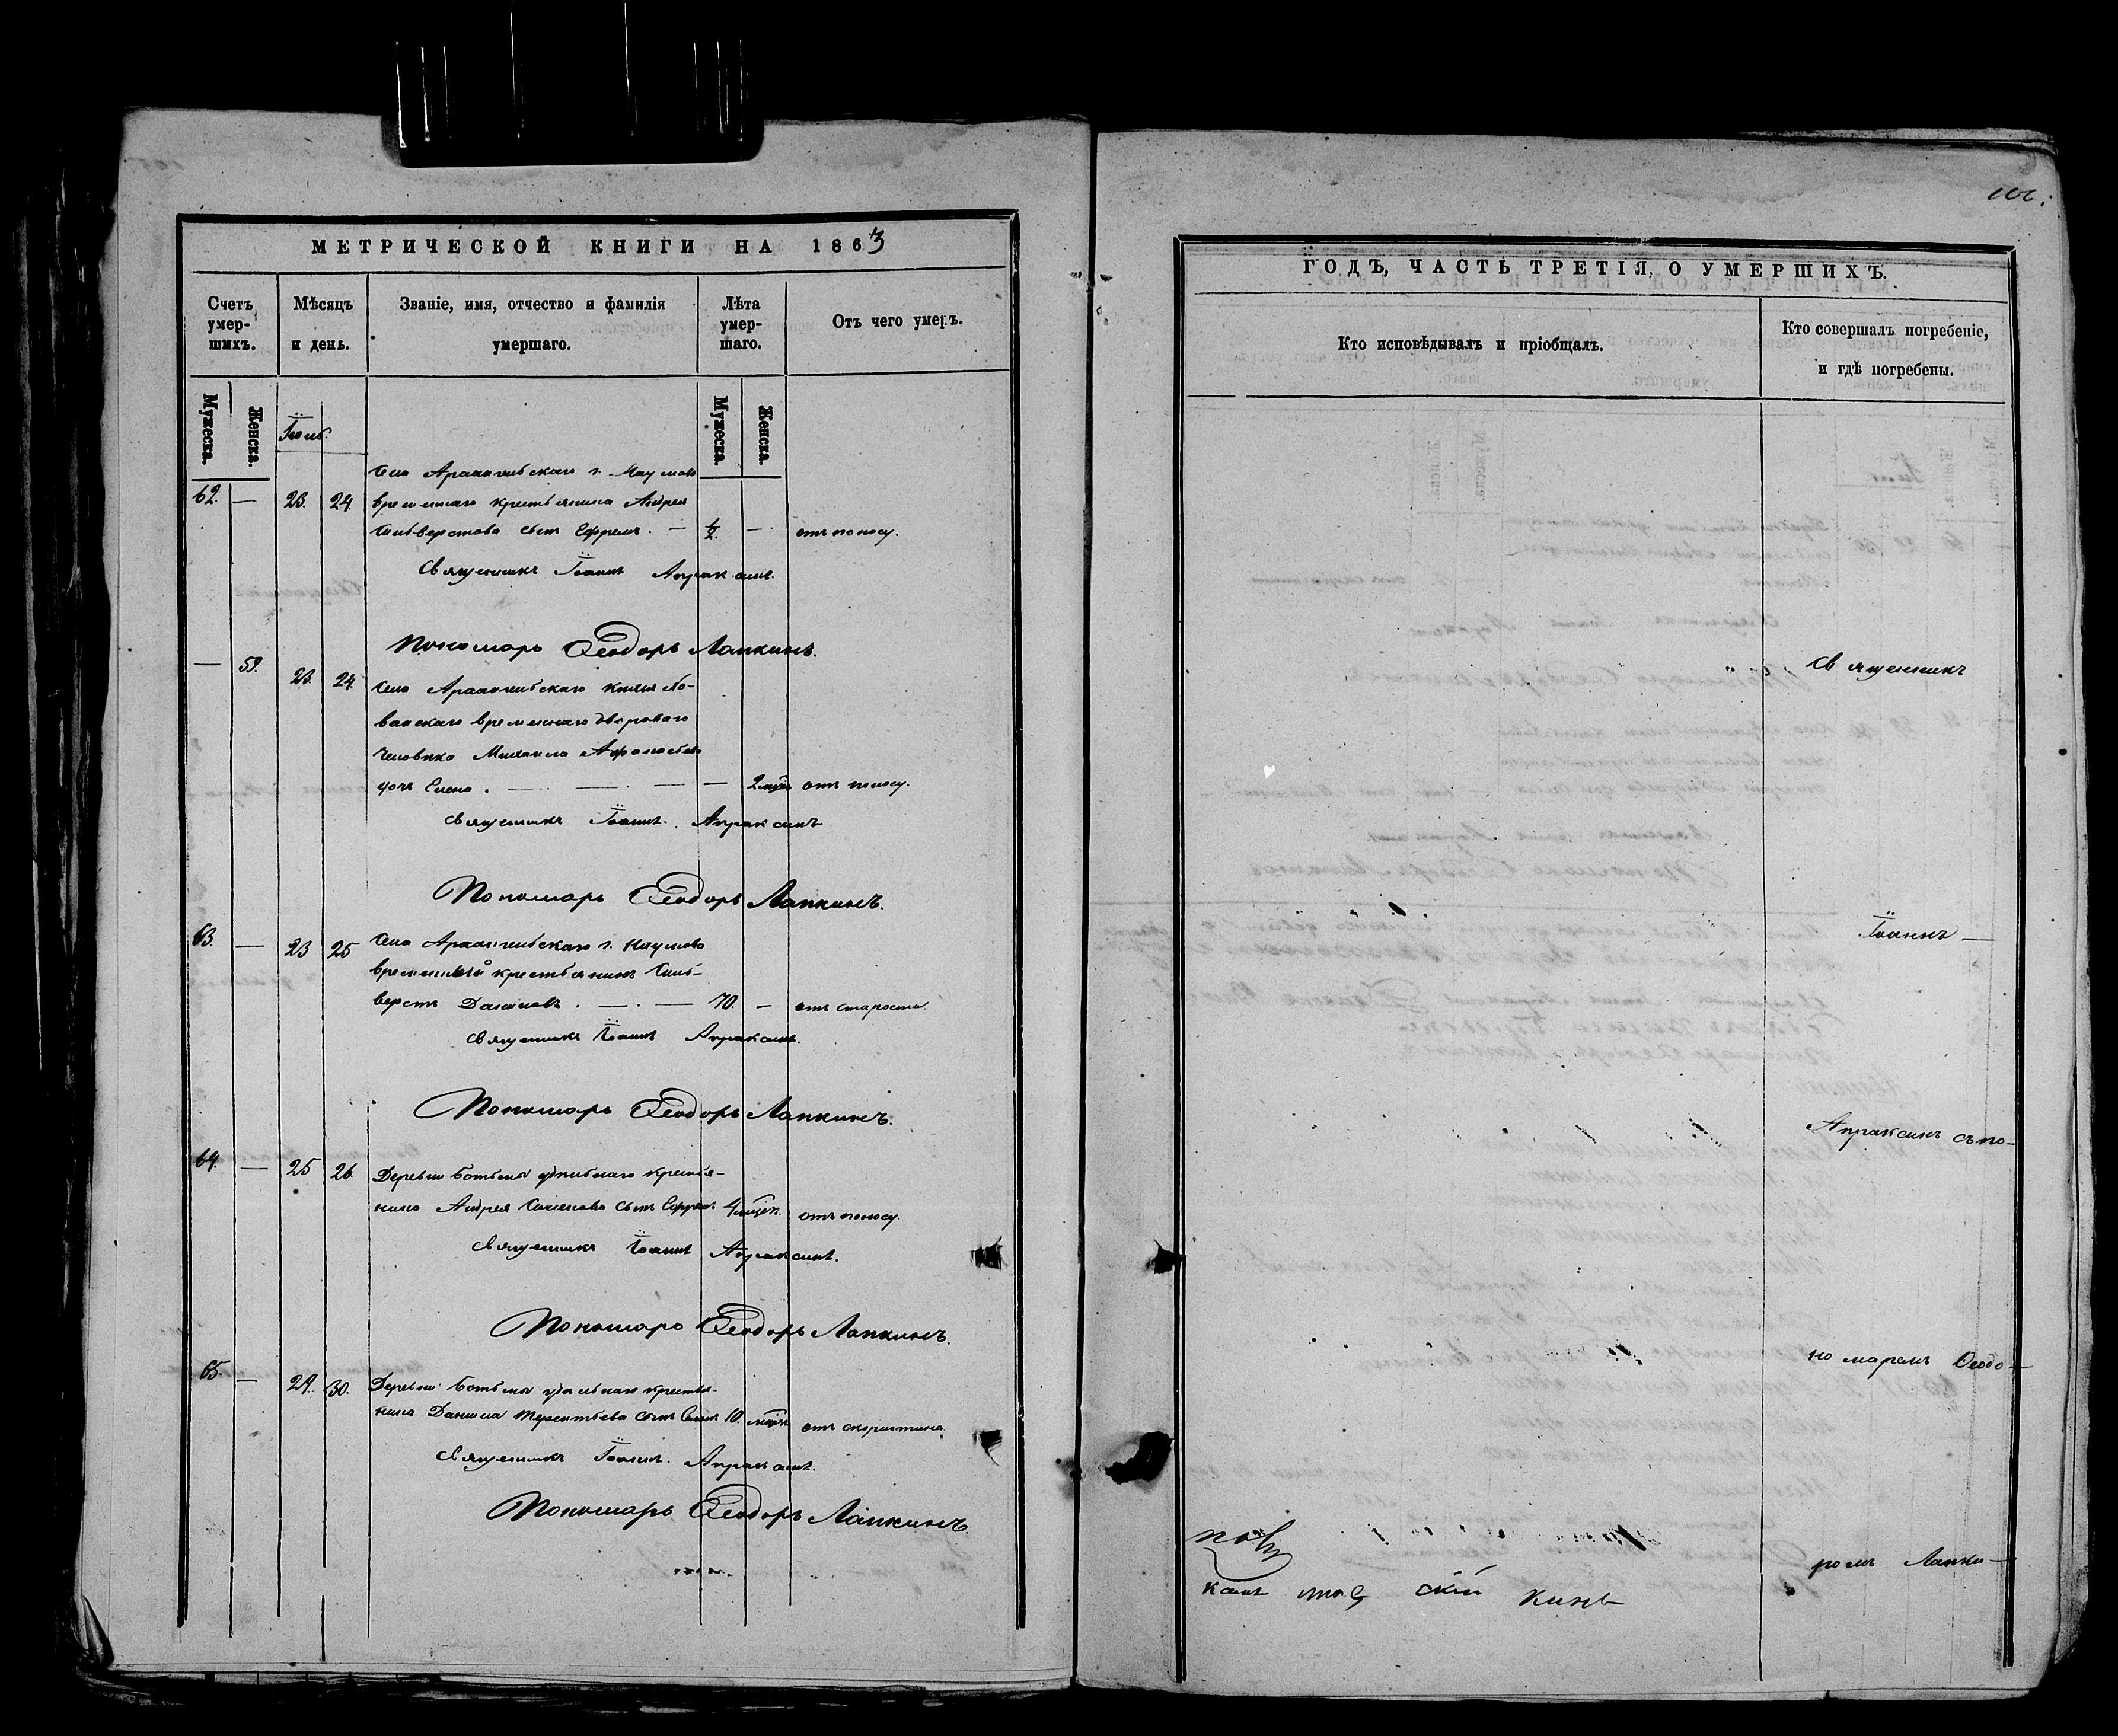 МЕТРИЧЕСКОЙ КНИГИ НА 1863
Счетъ умер-шихъ.
Мѣсяцъ и день.
Званіе, имя, отчество и фамилія умершаго.
Лѣта умер-шаго.
Отъ чего умеръ.
Мужеска.
Женска.
Мужеска.
Женска.
Села Архангельскаго г. Наумова
62. — 23. 24. временнаго крестьянина Андрея
Сильверстова сынъ Ефремъ. — 1/2. — отъ поносу.
Священникъ Іоаннъ Апраксинъ.
Пономарь Ѳеодоръ Лапкинъ.
— 59. 23. 24. Села Архангельскаго князя Ло-
банскаго временнаго двороваго
человѣка Михаила
дочь Елена. — — — — 2 отъ поносу.
Священникъ Іоаннъ Апраксинъ
Пономарь Ѳеодоръ Лапкинъ.
63. — 23 25 Села Архангельскаго г. Наумова
временный крестьянинъ Силь-
верстъ . — . — 70. — отъ старости.
Священникъ Іоаннъ Апраксинъ.
Пономарь Ѳеодоръ Лапкинъ.
64. — 25 26 Деревни удѣльнаго крестья-
нина Андрея сынъ Ефремъ 4 отъ поносу.
Священникъ Іоаннъ Апраксинъ.
Пономарь Ѳеодоръ Лапкинъ.
65. — 29. 30. Деревни удѣльнаго крестья-
нина Данила Терентьева сынъ 10. отъ
Священникъ Іоаннъ Апраксинъ.
Пономарь Ѳеодоръ Лапкинъ
ГОДЪ, ЧАСТЬ ТРЕТІЯ, О УМЕРШИХЪ.
Кто исповѣдывалъ и пріобщалъ.
Кто совершалъ погребеніе,
и гдѣ погребены.
Священникъ
Іоаннъ —
Апраксинъ съ по-
номаремъ Ѳеодо-
ромъ Лапки-
скій кинъ